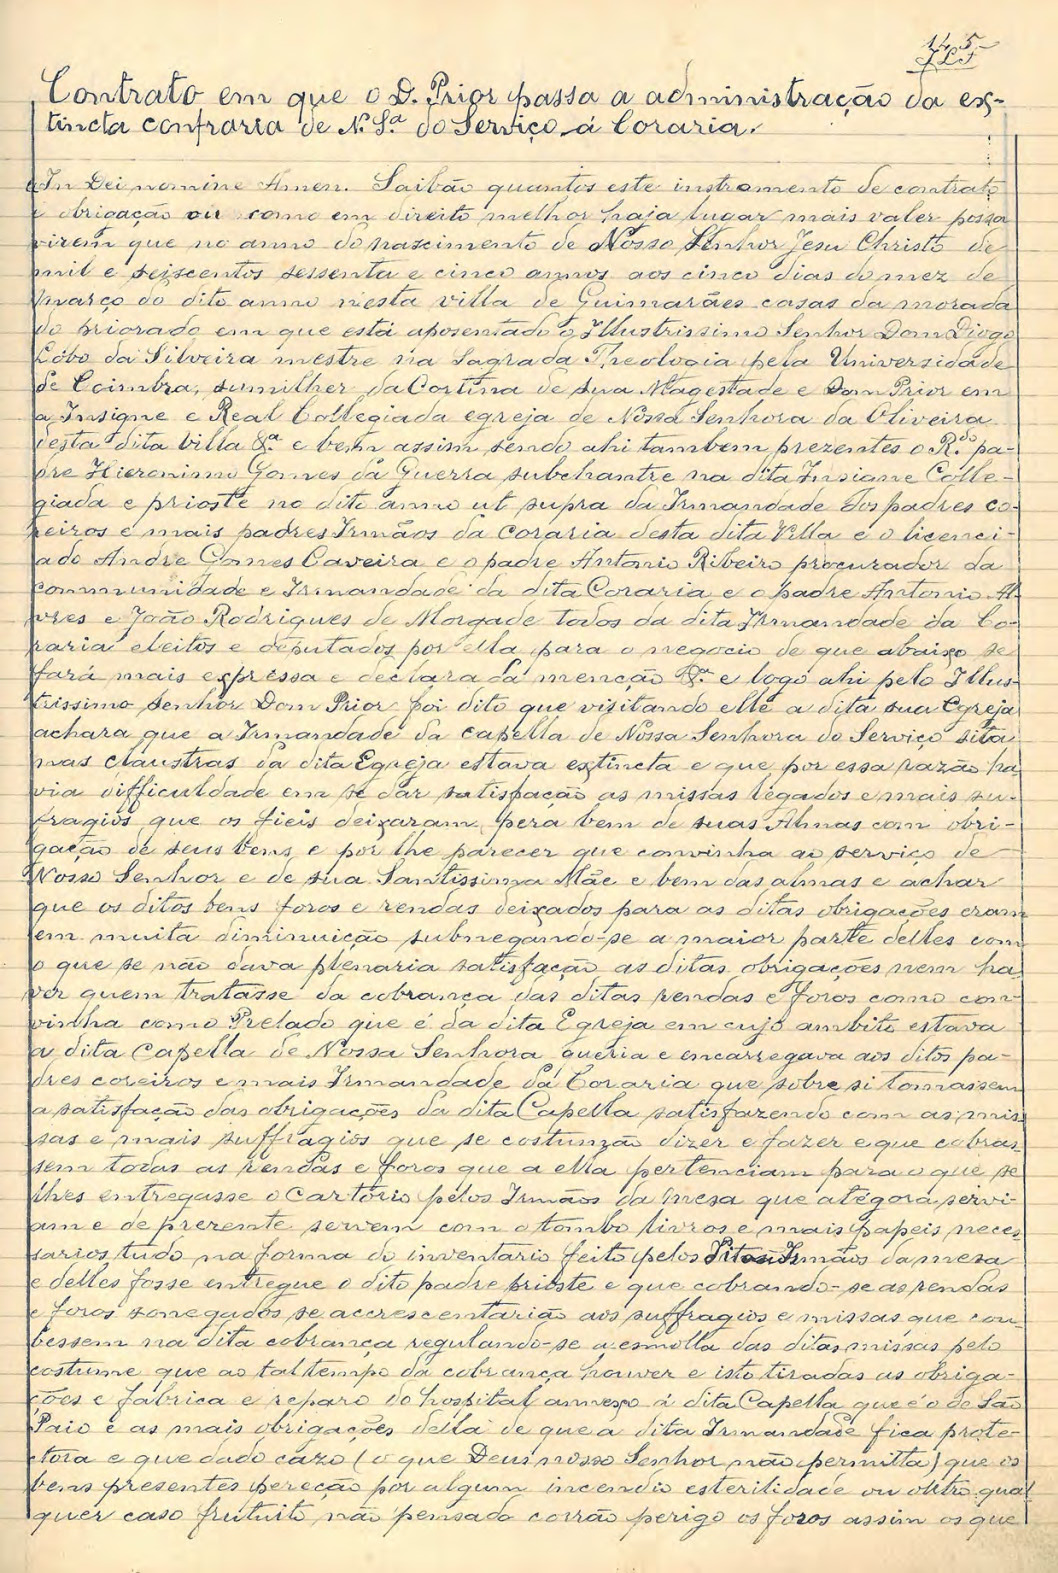 145
Contrato em que o D. Prior passa a administração da ex-
tincta confraria de N. S.ª do Serviço á Coraria.
In Dei nomine Amen. Saibão quantos este instromento de contrato
e obrigação ou como em direito melhor haja lugar mais valer possa
virem que no anno do nascimento de Nosso Senhor Jesu Christo de
mil e seiscentos sessenta e cinco annos aos cinco dias do mez de
março do dito anno nesta villa de Guimarães casas da morada
do priorado em que está aposentado o Illustrissimo Senhor Dom Diogo
Lobo da Silveira mestre na Sagrada Theologia pela Universidade
de Coimbra, sumilher da Cortina de sua Magestade e Dom Prior em
a Insigne e Real Collegiada egreja de Nossa Senhora da Oliveira
desta dita villa &.ª e bem assim sendo ahi tambem prezentes o R.do pa-
dre Hieronimo Gomes da Guerra subchantre na dita Insigne Colle-
giada e prioste no dito anno ut supra da Irmandade dos padres co-
reiros e mais padres Irmãos da coraria desta dita Villa e o licenci-
ado Andre Gomes Caveira e o padre Antonio Ribeiro procurador da
communidade e Irmandade da dita Coraria e o padre Antonio Al-
vres e João Rodrigues de Morgade todos da dita Irmandade da Co-
raria eleitos e deputados por ella para o negocio de que abaixo se
fará mais expressa e declarada menção &.ª e logo ahi pelo Illus-
trissimo Senhor Dom Prior foi dito que visitando elle a dita sua Egreja
achara que a Irmandade da capella de Nossa Senhora do Serviço sita
nas claustras da dita Egreja estava extincta e que por essa razão ha-
via difficuldade em se dar satisfação as missas legados e mais su-
fragios que os fieis deixaram pera bem de suas Almas com obri-
gação de seus bens, e por lhe parecer que convinha ao serviço de
Nosso Senhor e de sua Santissima Mãe e bem das almas e achar
que os ditos bens foros e rendas deixados para as ditas obrigações eram
em muita diminuição subnegando-se a maior parte delles com
o que se não dava plenaria satisfação as ditas obrigações nem ha-
ver quem tratasse da cobrança das ditas rendas e foros como con-
vinha como Prelado que é da dita Egreja em cujo ambito estava
a dita Capella de Nossa Senhora queria e encarregava aos ditos pa-
dres coreiros e mais Irmandade da Coraria que sobre si tomassem
a satisfação das obrigações da dita Capella satisfazendo com as mis-
sas e mais suffragios que se costumão dizer e fazer e que cobras-
sem todas as rendas e foros que a ella pertenciam para o que se
lhes entregasse o Cartório pelos Irmãos da mesa que atégora servi-
am e de prezente servem com o tombo livros e mais papeis neces
sarios tudo na forma do inventario feito pelos Ditos Irmãos da mesa
e delles fosse entregue o dito padre prioste e que cobrando-se as rendas
e foros sonegados se accrescentarião aos suffragios e missas que cou-
bessem na dita cobrança regulando-se a esmolla das ditas missas pelo
costume que ao tal tempo da cobrança houver e isto tiradas as obriga-
ções e fabrica e reparo do hospital annexo á dita Capella que é o de São
Paio e as mais obrigações della de que a dita Irmandade fica prote-
ctora e que dado cazo (o que Deus nosso Senhor não permitta) que os
bens presentes pereção por algum incendio esterilidade ou outro qual
quer caso fortuito não pensado corrão perigo os foros assim os que